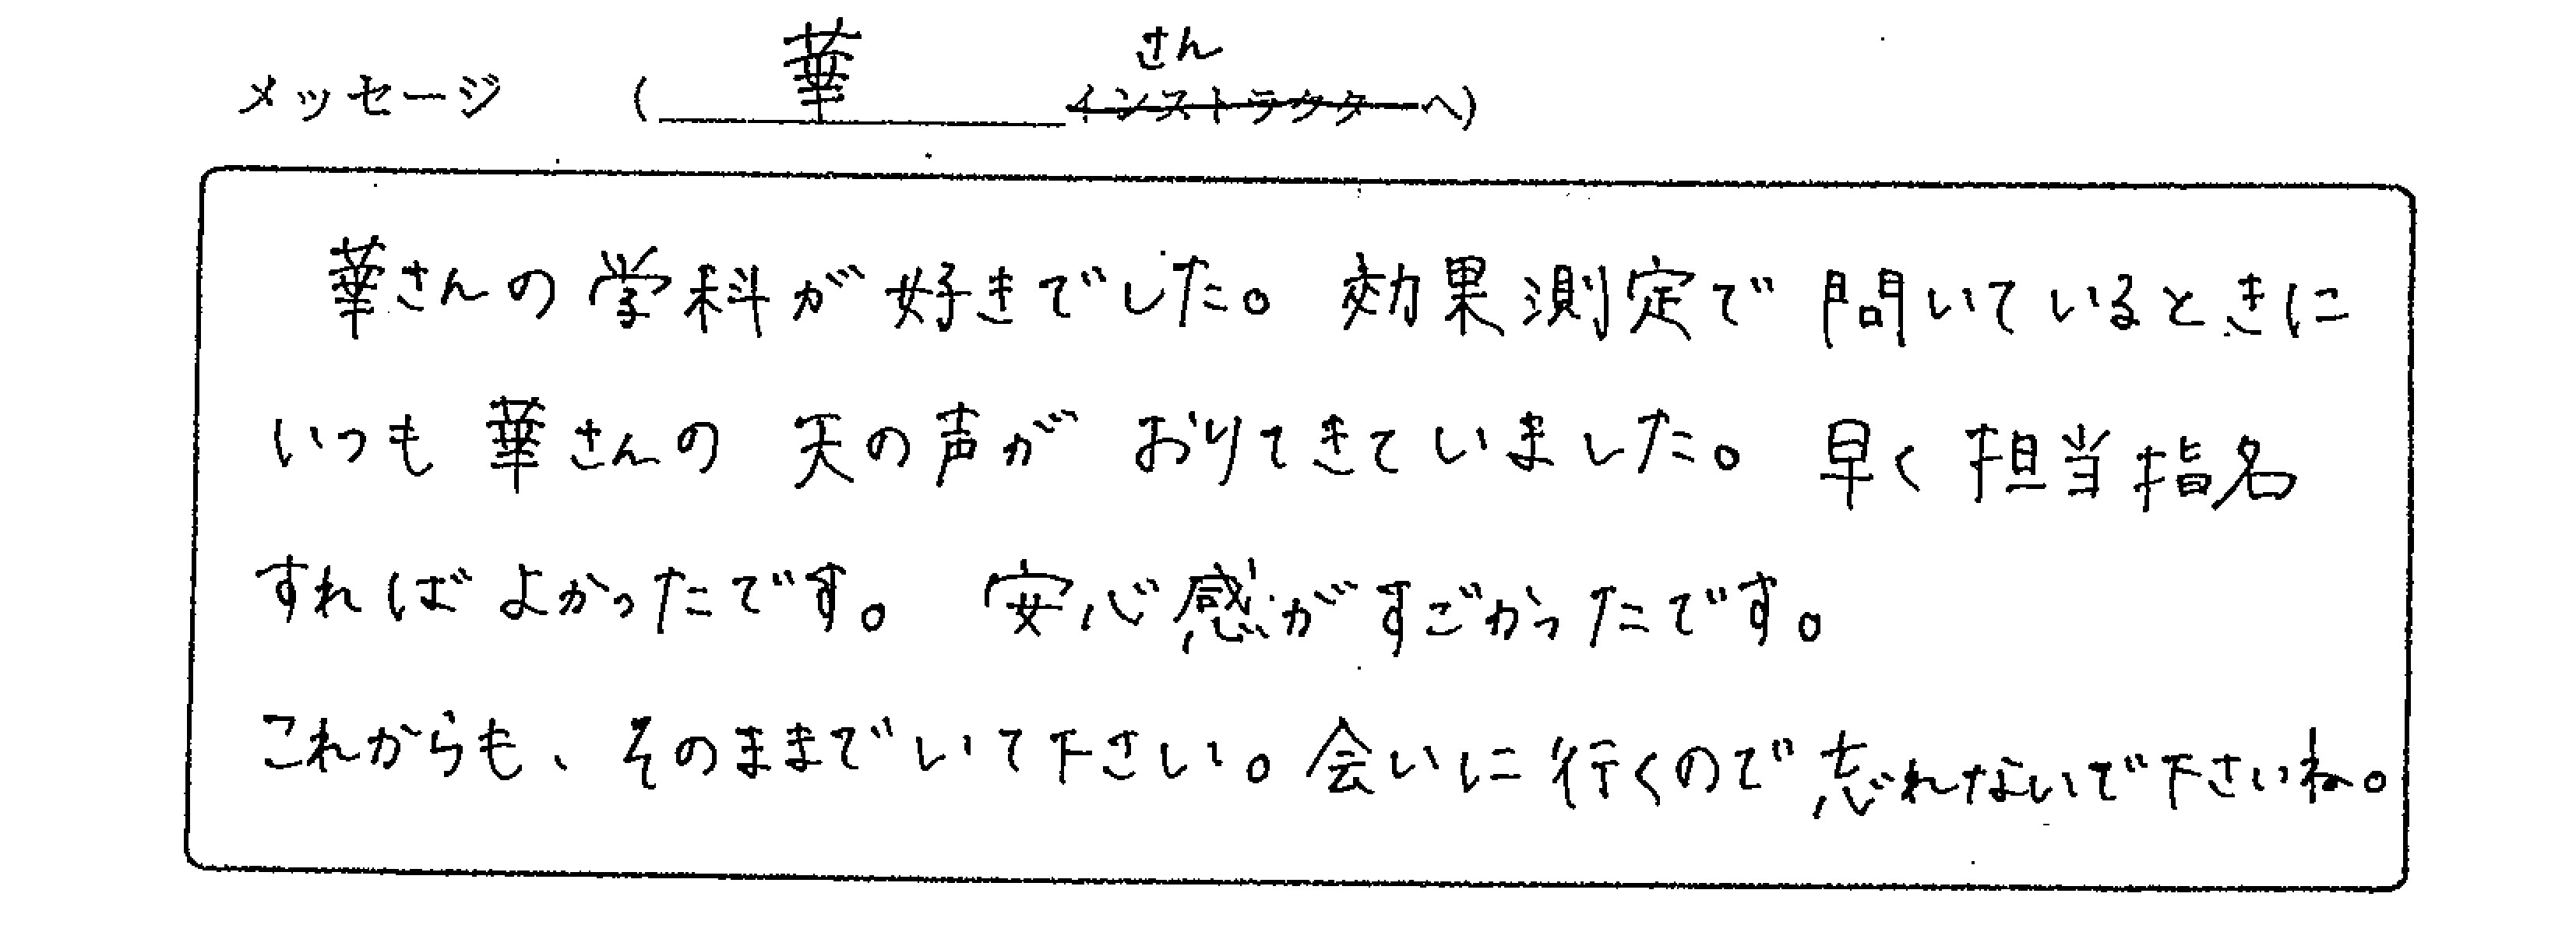 メッセージ （ 華 さん インストラクターへ）
華さんの学科が好きでした。効果測定で問いているときに
いつも華さんの天の声がおりてきていました。早く担当指名
すればよかったです。安心感がすごかったです。
これからも、そのままでいて下さい。会いに行くので忘れないで下さいね。